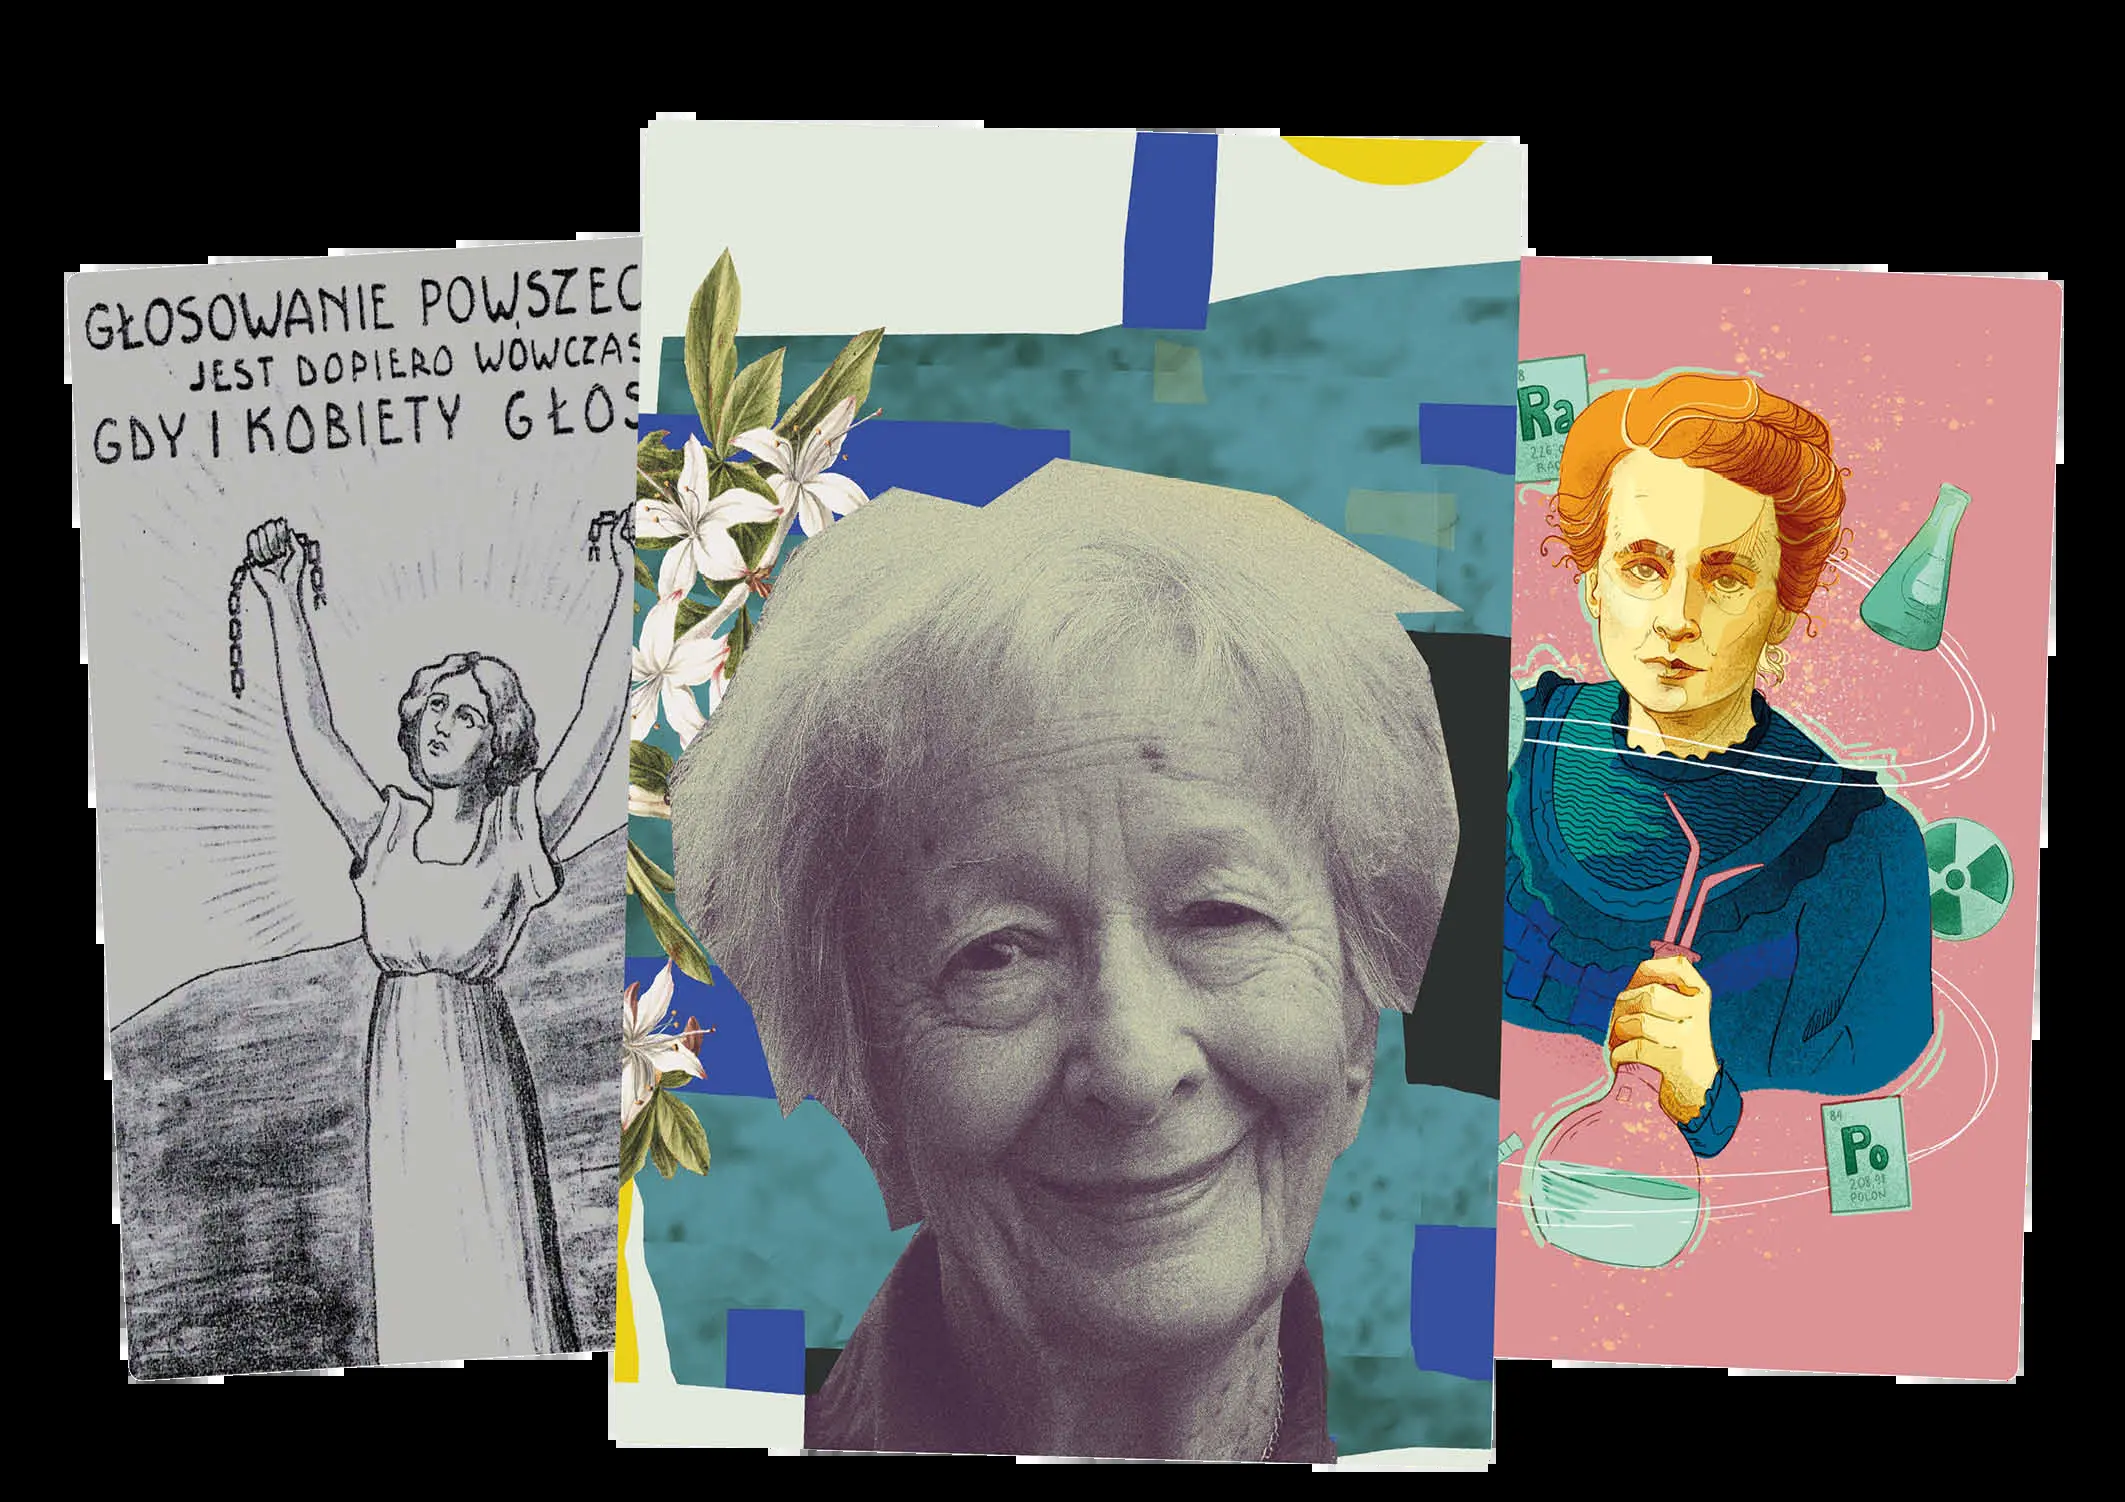 GŁOSOWANIE POWSZEC
JEST DOPIERO WÓWCZAS
GDY I KOBIETY GŁOS
88
Ra
226,0
RAD
84
Po
208,98
POLON